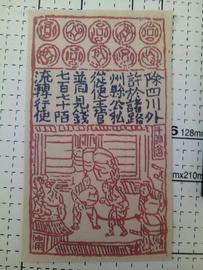 除四川外
許於諸路
州縣公私
從便主管
並同見錢
七百七十陌
流轉行使
6
128mm
mx210m